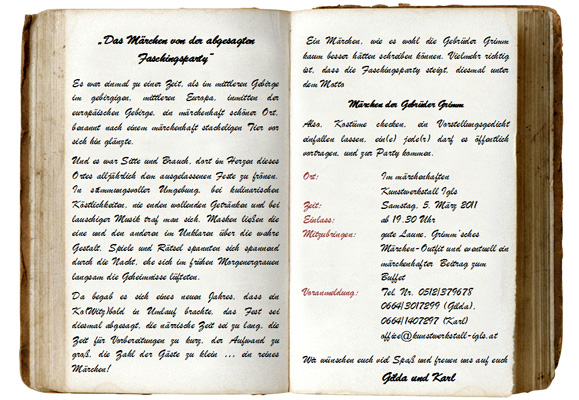 „Das Märchen von der abgesagten
Faschingsparty“
Es war einmal zu einer Zeit, als im mittleren Gebirge
im gebirgigen, mittleren Europa, inmitten der
europäischen Gebirge, ein märchenhaft schöner Ort,
benannt nach einem märchenhaft stacheligen Tier vor
sich hin glänzte.
Und es war Sitte und Brauch, dort im Herzen dieses
Ortes alljährlich dem ausgelassenen Feste zu frönen.
In stimmungsvoller Umgebung, bei kulinarischen
Köstlichkeiten, nie enden wollenden Getränken und bei
lauschiger Musik traf man sich. Masken ließen die
eine und den anderen im Unklaren über die wahre
Gestalt. Spiele und Rätsel spannten sich spannend
durch die Nacht, ehe sich im frühen Morgenergrauen
langsam die Geheimnisse lüfteten.
Da begab es sich eines neuen Jahres, dass ein
Ko(Witz)bold in Umlauf brachte, das Fest sei
diesmal abgesagt, die närrische Zeit sei zu lang, die
Zeit für Vorbereitungen zu kurz, der Aufwand zu
groß, die Zahl der Gäste zu klein ... ein reines
Märchen!
Ein Märchen, wie es wohl die Gebrüder Grimm
kaum besser hätten schreiben können. Vielmehr richtig
ist, dass die Faschingsparty steigt, diesmal unter
dem Motto
Märchen der Gebrüder Grimm
Also, Kostüme checken, ein Vorstellungsgedicht
einfallen lassen, ein(e) jede(r) darf es öffentlich
vortragen, und zur Party kommen.
Ort: Im märchenhaften
Kunstwerkstall Igls
Zeit: Samstag, 5. März 2011
Einlass: ab 19.30 Uhr
Mitzubringen: gute Laune, Grimm'sches
Märchen-Outfit und eventuell ein
märchenhafter Beitrag zum
Buffet
Voranmeldung: Tel. Nr. 0512/379678
0664/3017299 (Gilda),
0664/1407297 (Karl)
office@kunstwerkstall-igls.at
Wir wünschen euch viel Spaß und freuen uns auf euch
Gilda und Karl